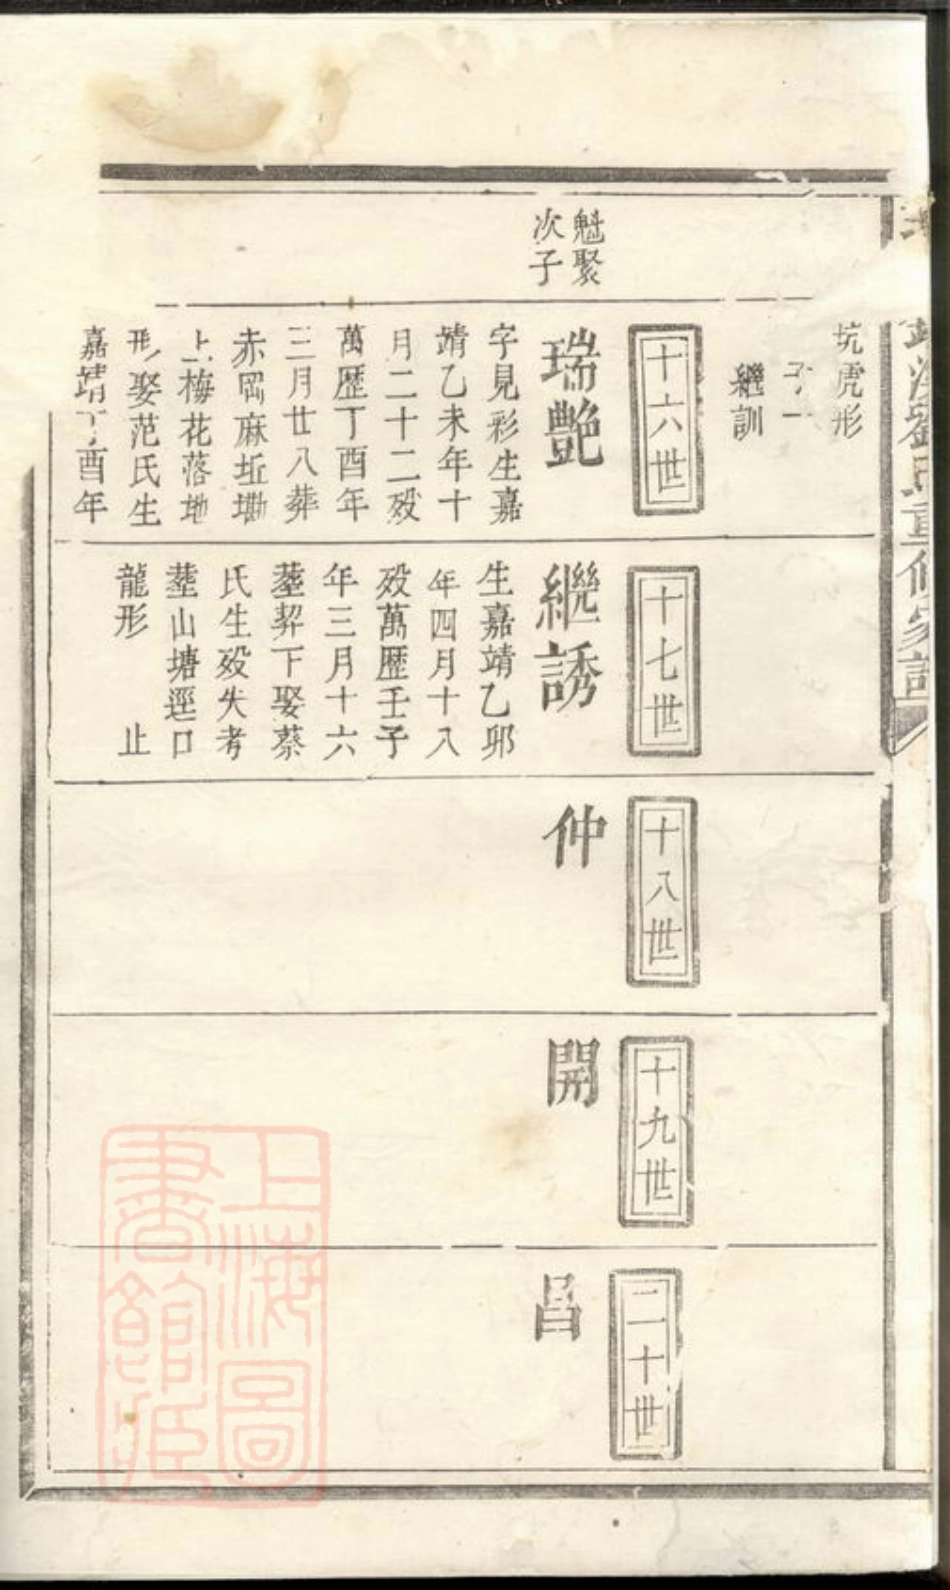 劉氏重修家譜
坑虎形
子一
繼訓
十六世
魁聚
次子
瑞艷
字見彩生嘉
靖乙未年十
月二十二殁
萬歷丁酉年
三月廿八葬
赤岡麻坵墈
上梅花落地
形娶范氏生
嘉靖丁酉年
十七世
繼誘
生嘉靖乙卯
年四月十八
殁萬歷壬子
年三月十六
塟契下娶蔡
氏生殁失考
塟山塘逕口
龍形 止
十八世
仲
十九世
開
二十世
昌
上海圖
書館藏